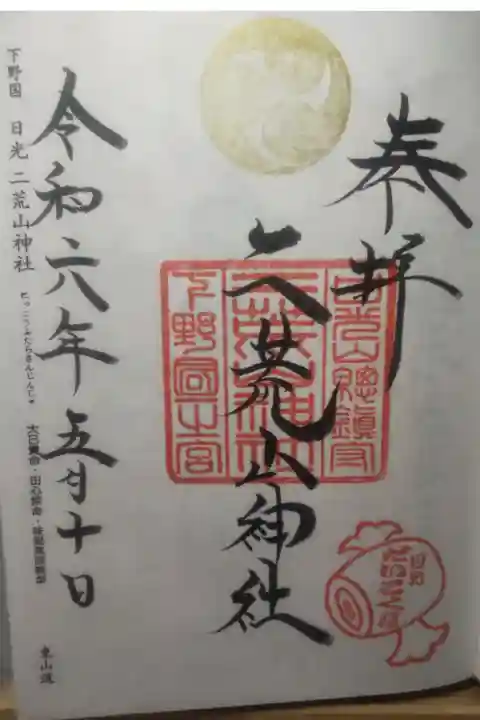 奉拝
二荒山神社
日光山總鎮守
二荒山神社
下野國一之宮
令和六年五月十日
下野国 日光 二荒山神社
にっこうふたらさんじんじゃ
大己貴命・田心姫命・味耜高彦根命
東山道